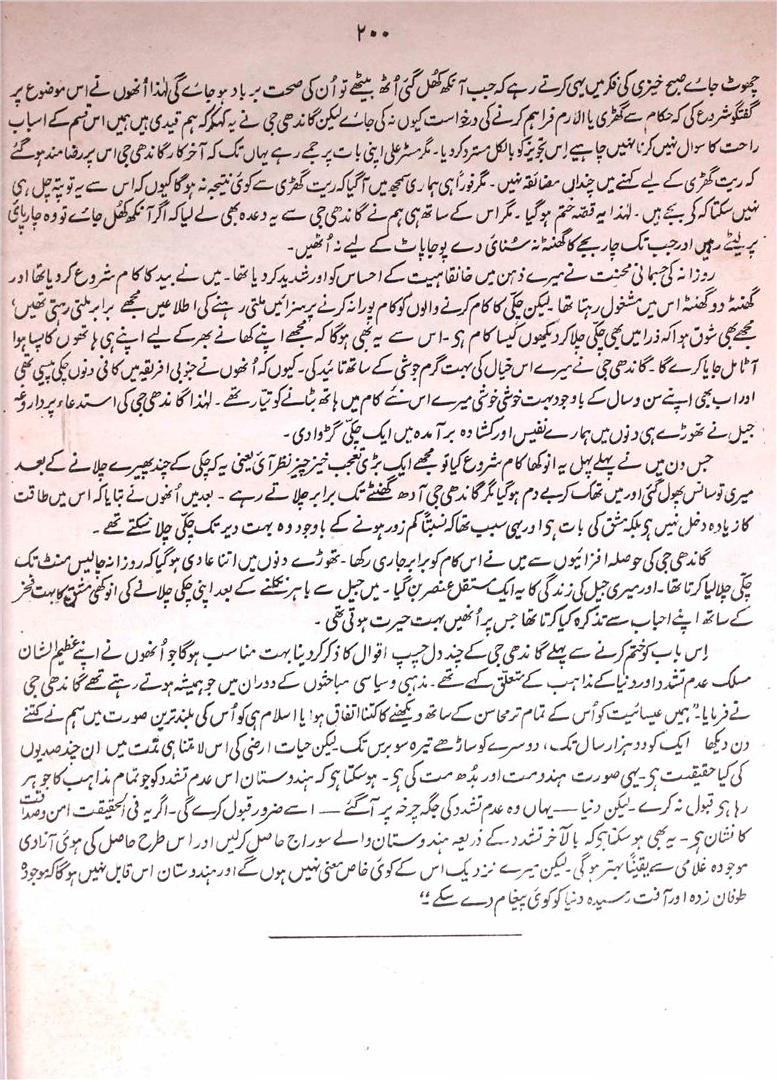 ۲۰۰
چھوٹ جائے صبح خیزی کی فکر میں یہی کرتے رہے کہ جب آنکھ کھل گئی اُٹھ بیٹھے تو اُن کی صحت برباد ہو جائے گی لہٰذا اُنھوں نے اس موضوع پر
گفتگو شروع کی کہ حکام سے گھڑی یا الارم فراہم کرنے کی درخواست کیوں نہ کی جائے لیکن گاندھی جی نے یہ کہکر کہ ہم قیدی ہیں ہمیں اس قسم کے اسباب
راحت کا سوال نہیں کرنا نہیں چاہیے اِس تجویز کو بالکل مسترد کر دیا۔ مگر مسٹر علی اپنی بات پر جمے رہے یہاں تک کہ آخر کار گاندھی جی اس پر رضامند ہو گئے
کہ ریت گھڑی کے لیے کہنے میں چنداں مضائقہ نہیں۔ مگر فوراً ہی ہماری سمجھ میں آگیا کہ ریت گھڑی سے کوئی نتیجہ نہ ہوگا کیوں کہ اس سے یہ تو پتہ چل ہی
نہیں سکتا کہ کَے بجے ہیں۔ لہٰذا یہ قصّہ ختم ہوگیا۔ مگر اس کے ساتھ ہی ہم نے گاندھی جی سے یہ وعدہ بھی لے لیا کہ اگر آنکھ کھل جائے تو وہ چارپائی
پر لیٹے رہیں اور جب تک چار بجے کا گھنٹہ نہ سُنائی دے پوجا پاٹ کے لیے نہ اُٹھیں۔
روزانہ کی جسمانی محنت نے میرے ذہن میں خانقاہیت کے احساس کو اور شدید کر دیا تھا۔ میں نے بید کا کام شروع کر دیا تھا اور
گھنٹہ دو گھنٹہ اس میں مشغول رہتا تھا۔ لیکن چکّی کا کام کرنے والوں کو کام پورا نہ کرنے پر سزائیں ملتی رہنے کی اطلاعیں مجھے برابر ملتی رہتی تھیں،
مجھے بھی شوق ہوا کہ ذرا میں بھی چکّی چلا کر دیکھوں کیسا کام ہی۔ اس سے یہ بھی ہوگا کہ مجھے اپنے کھانے بھر کے لیے اپنے ہی ہاتھوں کا پسا ہوا
آٹا مل جایا کرے گا۔ گاندھی جی نے میرے اس خیال کی بہت گرم جوشی کے ساتھ تائید کی۔ کیوں کہ اُنھوں نے جنوبی افریقہ میں کافی دنوں چکّی پیسی تھی
اور اب بھی اپنے سن و سال کے باوجود بہت خوشی خوشی میرے اس نئے کام میں ہاتھ بٹانے کو تیار تھے۔ لہٰذا گاندھی جی کی استدعاء پر داروغۂ
جیل نے تھوڑے ہی دنوں میں ہمارے نفیس اور کشادہ برآمدہ میں ایک چکّی گڑوا دی۔
جس دن میں نے پہلے پہل یہ انوکھا کام شروع کیا تو مجھے ایک بڑی تعجب خیز چیز نظر آئی یعنی یہ کہ چکی کے چند پھیرے چلانے کے بعد
میری تو سانس پھول گئی اور میں تھک کر بے دم ہوگیا مگر گاندھی جی آدھ گھنٹے تک برابر چلاتے رہے۔ بعد میں اُنھوں نے بتایا کہ اس میں طاقت
کا زیادہ دخل نہیں ہی بلکہ مشق کی بات ہی اور یہی سبب تھا کہ نسبتاً کمزور ہونے کے باوجود وہ بہت دیر تک چکّی چلا سکتے تھے۔
گاندھی جی کی حوصلہ افزائیوں سے میں نے اس کام کو برابر جاری رکھا۔ تھوڑے دنوں میں اتنا عادی ہو گیا کہ روزانہ چالیس منٹ تک
چکّی چلا لیا کرتا تھا۔ اور میری جیل کی زندگی کا یہ ایک مستقل عنصر بن گیا۔ میں جیل سے باہر نکلنے کے بعد اپنی چکی چلانے کی انوکھی مشق کا بہت فخر
کے ساتھ اپنے احباب سے تذکرہ کیا کرتا تھا جس پر اُنھیں بہت حیرت ہوتی تھی۔
اِس باب کو ختم کرنے سے پہلے گاندھی جی کے چند دل چسپ اقوال کا ذکر کر دینا بہت مناسب ہوگا جو اُنھوں نے اپنے عظیم الشان
مسلک عدم تشدد اور دنیا کے مذاہب کے متعلق کہے تھے۔ مذہبی و سیاسی مباحثوں کے دوران میں جو ہمیشہ ہوتے رہتے تھے گاندھی جی
نے فرمایا۔ "ہمیں عیسائیت کو اُس کے تمام تر محاسن کے ساتھ دیکھنے کا کتنا اتفاق ہوا یا اسلام ہی کو اُس کی بلند ترین صورت میں ہم نے کتنے
دن دیکھا ایک کو دو ہزار سال تک، دوسرے کو ساڑھے تیرہ سو برس تک لیکن حیات ارضی کی اس لامتناہی مدّت میں ان چند صدیوں
کی کیا حقیقت ہی۔ یہی صورت ہندومت اور بدھ مت کی ہی۔ ہو سکتا ہی کہ ہندوستان اس عدم تشدد کو جو تمام مذاہب کا جوہر
رہا ہی قبول نہ کرے۔ لیکن دنیا — یہاں وہ عدم تشدد کی جگہ چرخہ پر آگئے — اسے ضرور قبول کرے گی۔ اگر یہ فی الحقیقت امن و صداقت
کا نشان ہی۔ یہ بھی ہو سکتا ہی کہ بالآخر تشدد کے ذریعہ ہندوستان والے سوراج حاصل کرلیں اور اس طرح حاصل کی ہوئی آزادی
موجودہ غلامی سے یقیناً بہتر ہوگی۔ لیکن میرے نزدیک اس کے کوئی خاص معنی نہیں ہوں گے اور ہندوستان اس قابل نہیں ہوگا کہ موجودہ
طوفان زدہ اور آفت رسیدہ دنیا کو کوئی پیغام دے سکے"